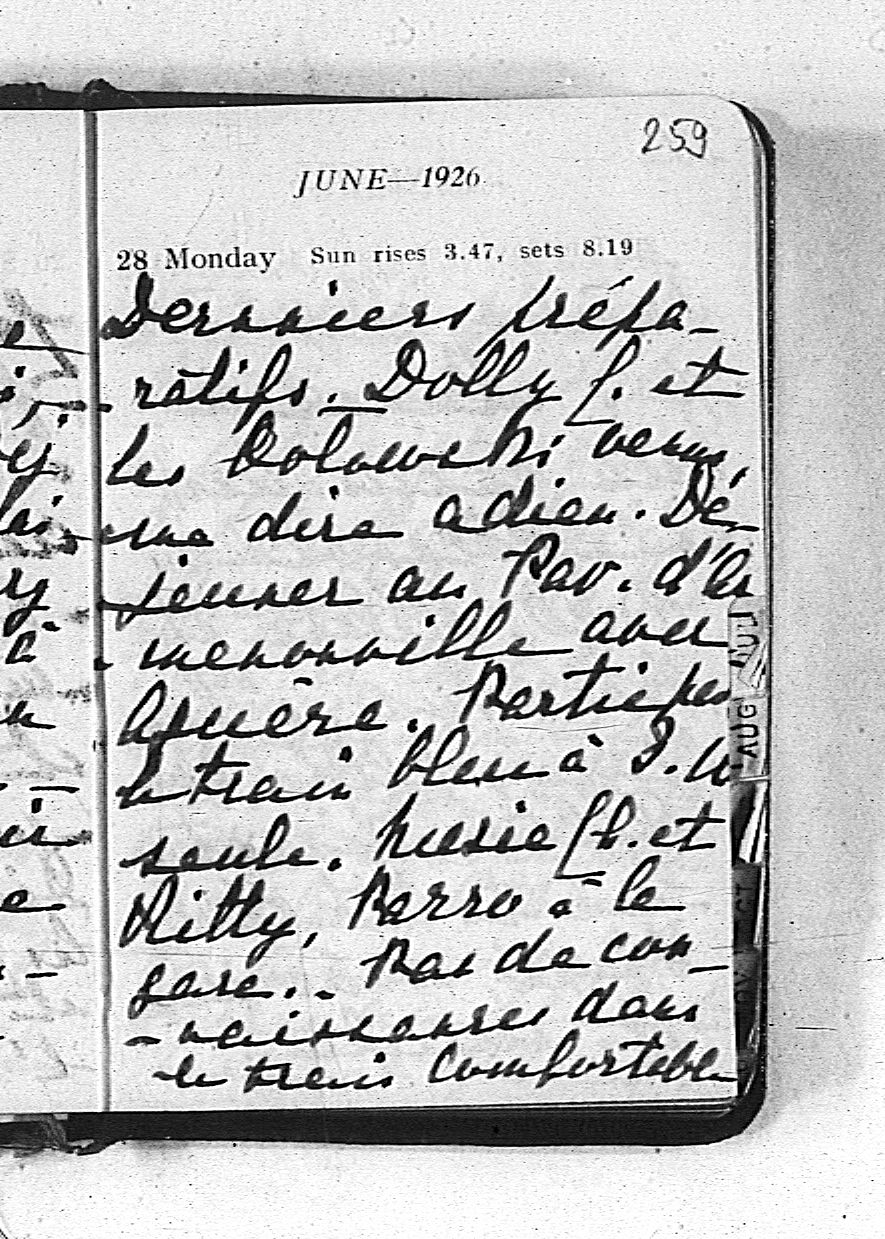 259
JUNE—1926
28 Monday Sun rises 3.47, sets 8.19
Derniers prépa-
-ratifs. Dolly et
les venus
me dire adieu. Dé-
-jeuner au Pav. d'Er
-menonville avec
Partie par
le train bleu à
seule. et
Kitty, à la
gare.. Pas de con-
-naissances dans
le train comfortable
AUG